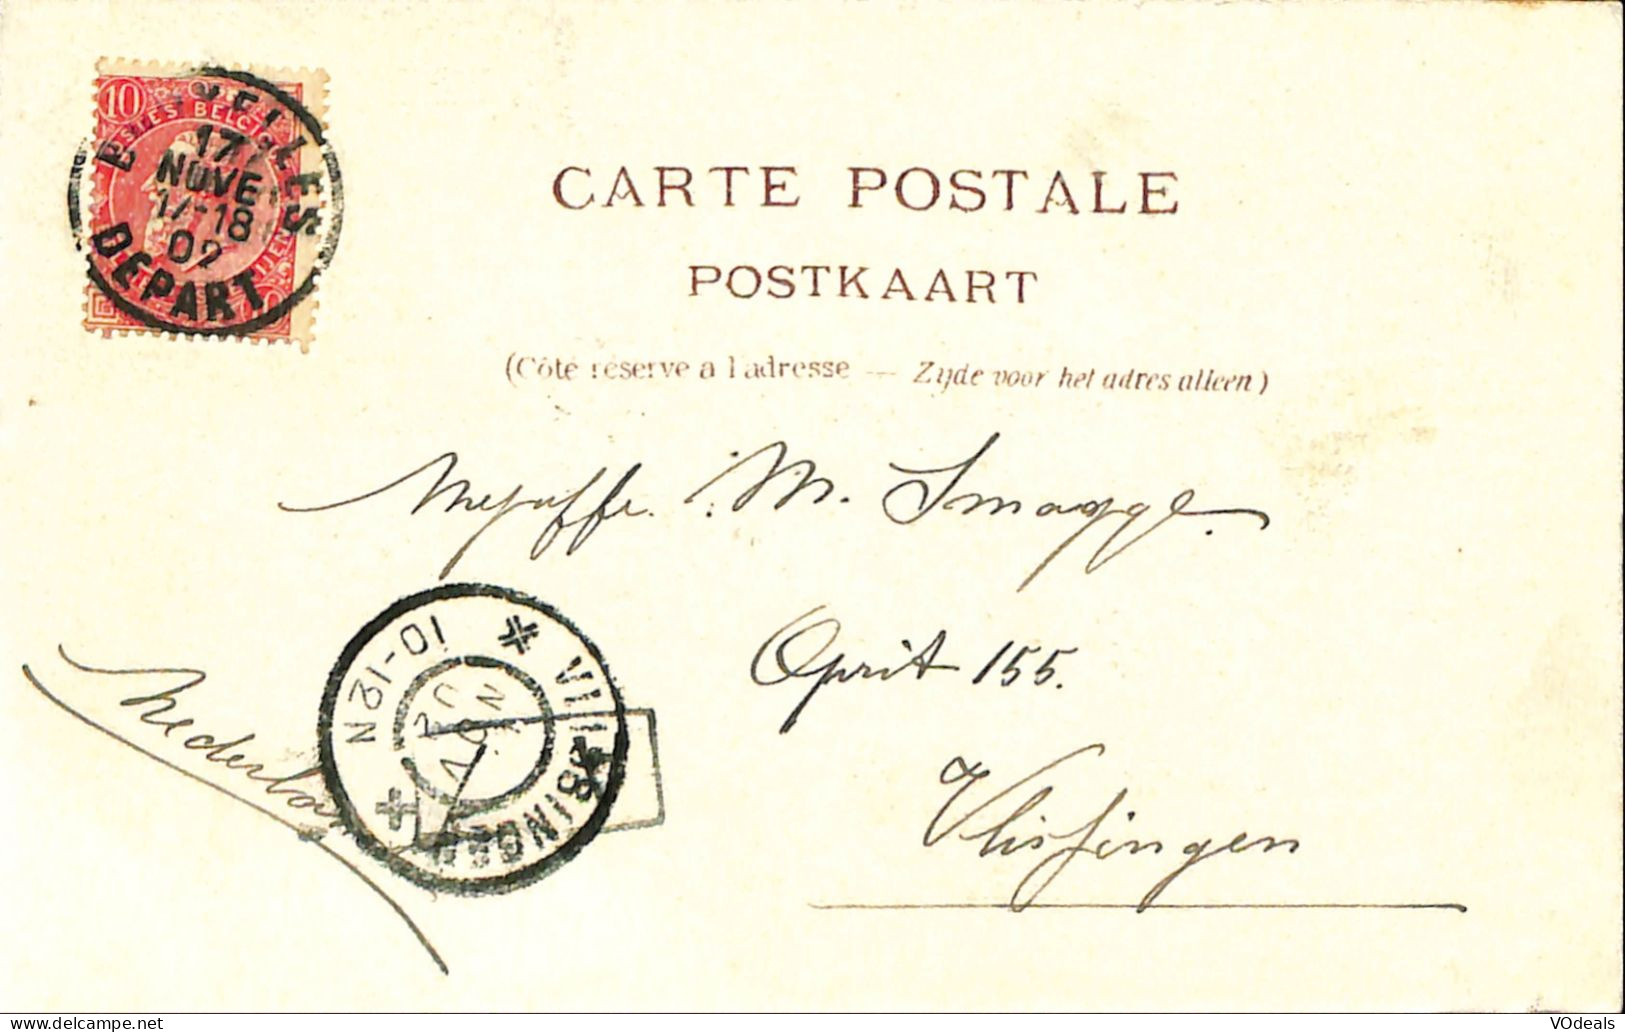 10
BRUXELLES
17
NOVE
17-18
02
DEPART
CARTE POSTALE
POSTKAART
(Côté réservé a l'adresse — Zijde voor het adres alleen)
Mejuffr. M. Smagge.
Oprit 155.
Vlissingen
Nederland
VLISSINGEN
10-12N
NOV
02
VOdeals